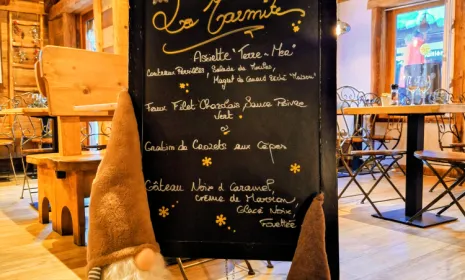 La Marmite
Assiette "Terre-Mer"
Couteaux Persillés, Salade de Moules,
Magret de Canard Séché "Maison"
Faux Filet Charolais Sauce Poivre
Vert
ou
Gratin de Crozets aux Cèpes
Gâteau Noir d Caramel,
Crème de Marron,
Glacé Noire,